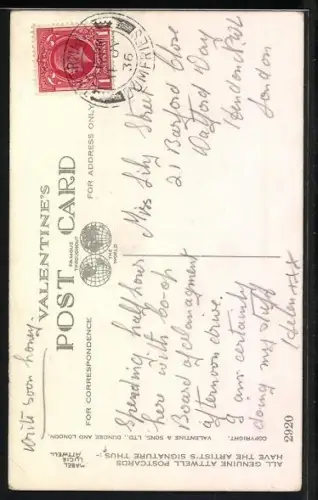 Write soon honey.
VALENTINE'S
POST CARD
FAMOUS THROUGHOUT
THE WORLD
FOR CORRESPONDENCE
FOR ADDRESS ONLY
Spending half hour
here with Co-op
Board of Management
afternoon drive.
I am certainly
doing my stuff
Helen xxx
Miss Lily Street
21 Barford Close
Watford Way
Hendon
London
DUMFRIES
36
COPYRIGHT.
VALENTINE & SONS, LTD., DUNDEE AND LONDON.
2920
ALL GENUINE ATTWELL POSTCARDS
HAVE THE ARTIST'S SIGNATURE THUS:-
MABEL
LUCIE
ATTWELL